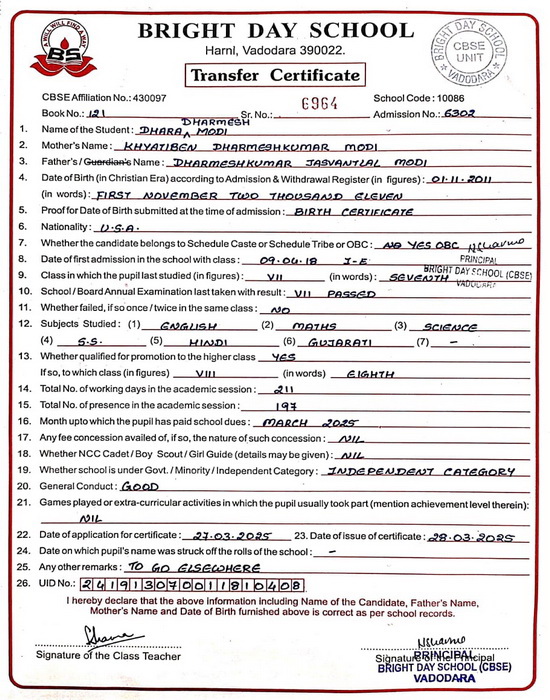 A WILL WILL FIND A WAY
BS
BRIGHT DAY SCHOOL
Harnl, Vadodara 390022.
BRIGHT DAY SCHOOL
CBSE
UNIT
VADODARA
Transfer Certificate
CBSE Affiliation No.: 430097 6964 School Code : 10086
Book No.: 121 Sr. No.: Admission No.: 6302
DHARMESH
1. Name of the Student : DHARA ^ MODI
2. Mother's Name : KHYATIBEN DHARMESHKUMAR MODI
3. Father's / Guardian's Name : DHARMESHKUMAR JASVANTLAL MODI
4. Date of Birth (in Christian Era) according to Admission & Withdrawal Register (in figures) : 01.11.2011
(in words) : FIRST NOVEMBER TWO THOUSAND ELEVEN
5. Proof for Date of Birth submitted at the time of admission : BIRTH CERTIFICATE
6. Nationality : U.S.A.
7. Whether the candidate belongs to Schedule Caste or Schedule Tribe or OBC : NO YES OBC
8. Date of first admission in the school with class : 09.04.18 I-E
PRINCIPAL
BRIGHT DAY SCHOOL (CBSE)
VADODARA
9. Class in which the pupil last studied (in figures) : VII (in words) : SEVENTH
10. School / Board Annual Examination last taken with result : VII PASSED
11. Whether failed, if so once / twice in the same class : NO
12. Subjects Studied : (1) ENGLISH (2) MATHS (3) SCIENCE
(4) S.S. (5) HINDI (6) GUJARATI (7) -
13. Whether qualified for promotion to the higher class YES
If so, to which class (in figures) VIII (in words) EIGHTH
14. Total No. of working days in the academic session : 211
15. Total No. of presence in the academic session : 197
16. Month upto which the pupil has paid school dues : MARCH 2025
17. Any fee concession availed of, if so, the nature of such concession : NIL
18. Whether NCC Cadet / Boy Scout / Girl Guide (details may be given) : NIL
19. Whether school is under Govt. / Minority / Independent Category : INDEPENDENT CATEGORY
20. General Conduct : GOOD
21. Games played or extra-curricular activities in which the pupil usually took part (mention achievement level therein):
NIL
22. Date of application for certificate : 27.03.2025 23. Date of issue of certificate : 28.03.2025
24. Date on which pupil's name was struck off the rolls of the school : -
25. Any other remarks : TO GO ELSEWHERE
26. UID No.: 241913070011810408
I hereby declare that the above information including Name of the Candidate, Father's Name,
Mother's Name and Date of Birth furnished above is correct as per school records.
Signature of the Class Teacher Signature of the Principal
PRINCIPAL
BRIGHT DAY SCHOOL (CBSE)
VADODARA